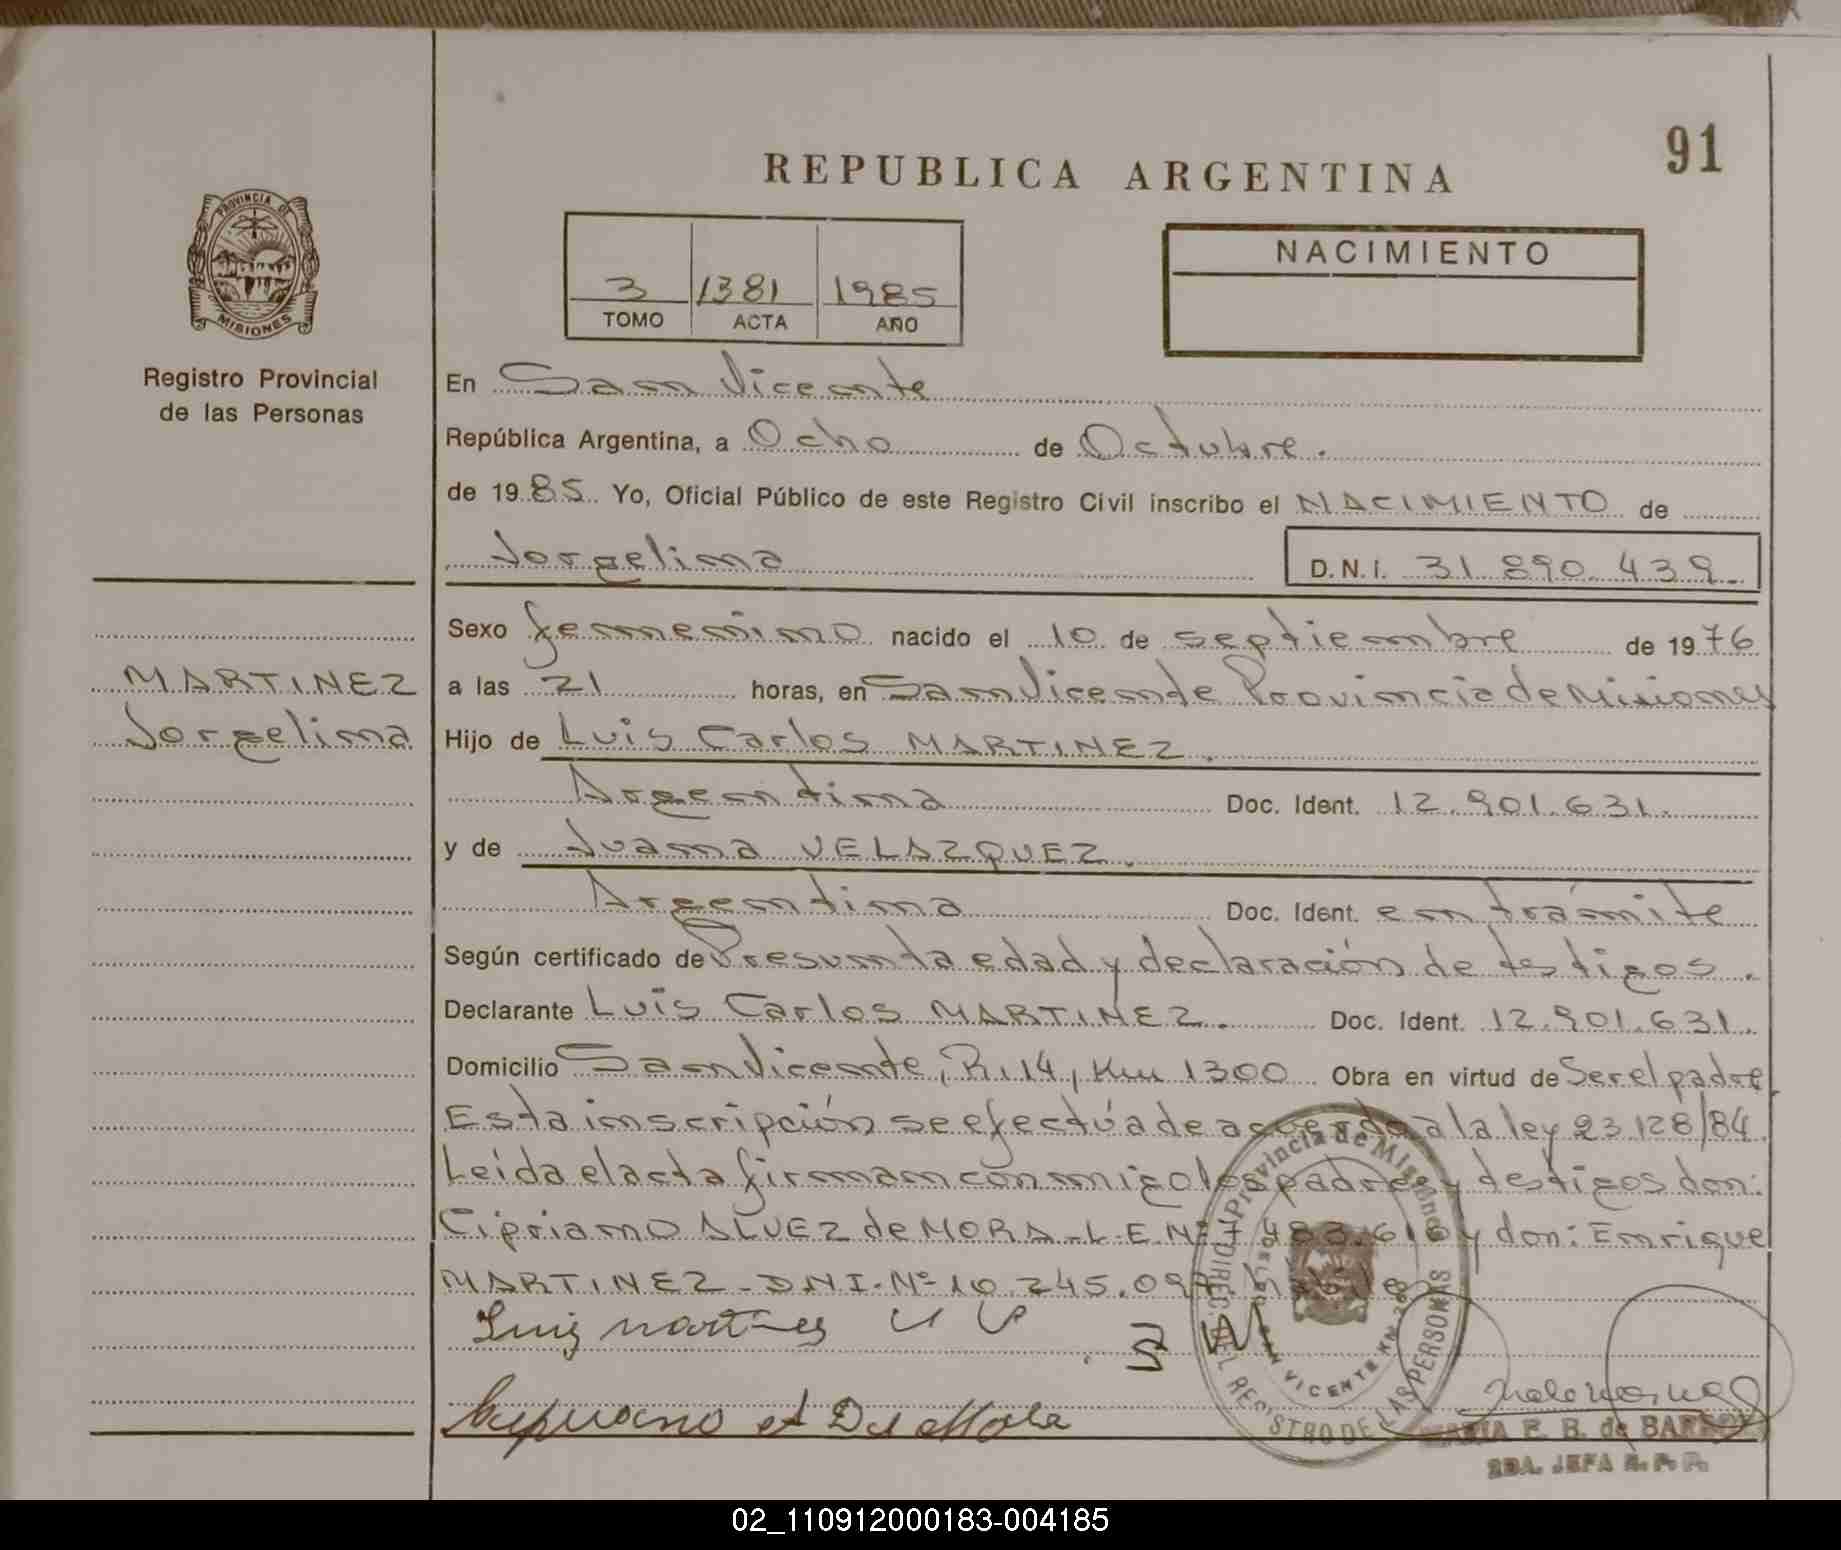 91
REPUBLICA ARGENTINA
PROVINCIA DE
MISIONES
Registro Provincial
de las Personas
3 1381 1985
TOMO ACTA AÑO
NACIMIENTO
En San Vicente
República Argentina, a Ocho de Octubre.
de 1985 Yo, Oficial Público de este Registro Civil inscribo el NACIMIENTO de
Jorgelina D.N.I. 31.890.439.
Sexo femenino nacido el 10 de septiembre de 1976
MARTINEZ
Jorgelina
a las 21 horas, en San Vicente Provincia de Misiones
Hijo de Luis Carlos MARTINEZ.
Argentina Doc. Ident. 12.901.631.
y de Juana VELAZQUEZ.
Argentina Doc. Ident. en trámite
Según certificado de Presunta edad y declaración de testigos.
Declarante Luis Carlos MARTINEZ. Doc. Ident. 12.901.631.
Domicilio San Vicente, R.14, Km 1300 Obra en virtud de Ser el padre.
Esta inscripción se efectúa de acuerdo a la ley 23.128/84.
Leída el acta firman conmigo los padres y testigos don:
Cipriano ALVEZ de MORA - L.E. Nº 7.483.610 y don: Enrique
MARTINEZ - D.N.I. Nº 10.245.09
Luiz martines
Provincia de Misiones
DIREC. DEL REGISTRO DE LAS PERSONAS
SAN VICENTE KM
MARIA E. B. de BARROS
2DA. JEFA R. P. P.
02_110912000183-004185